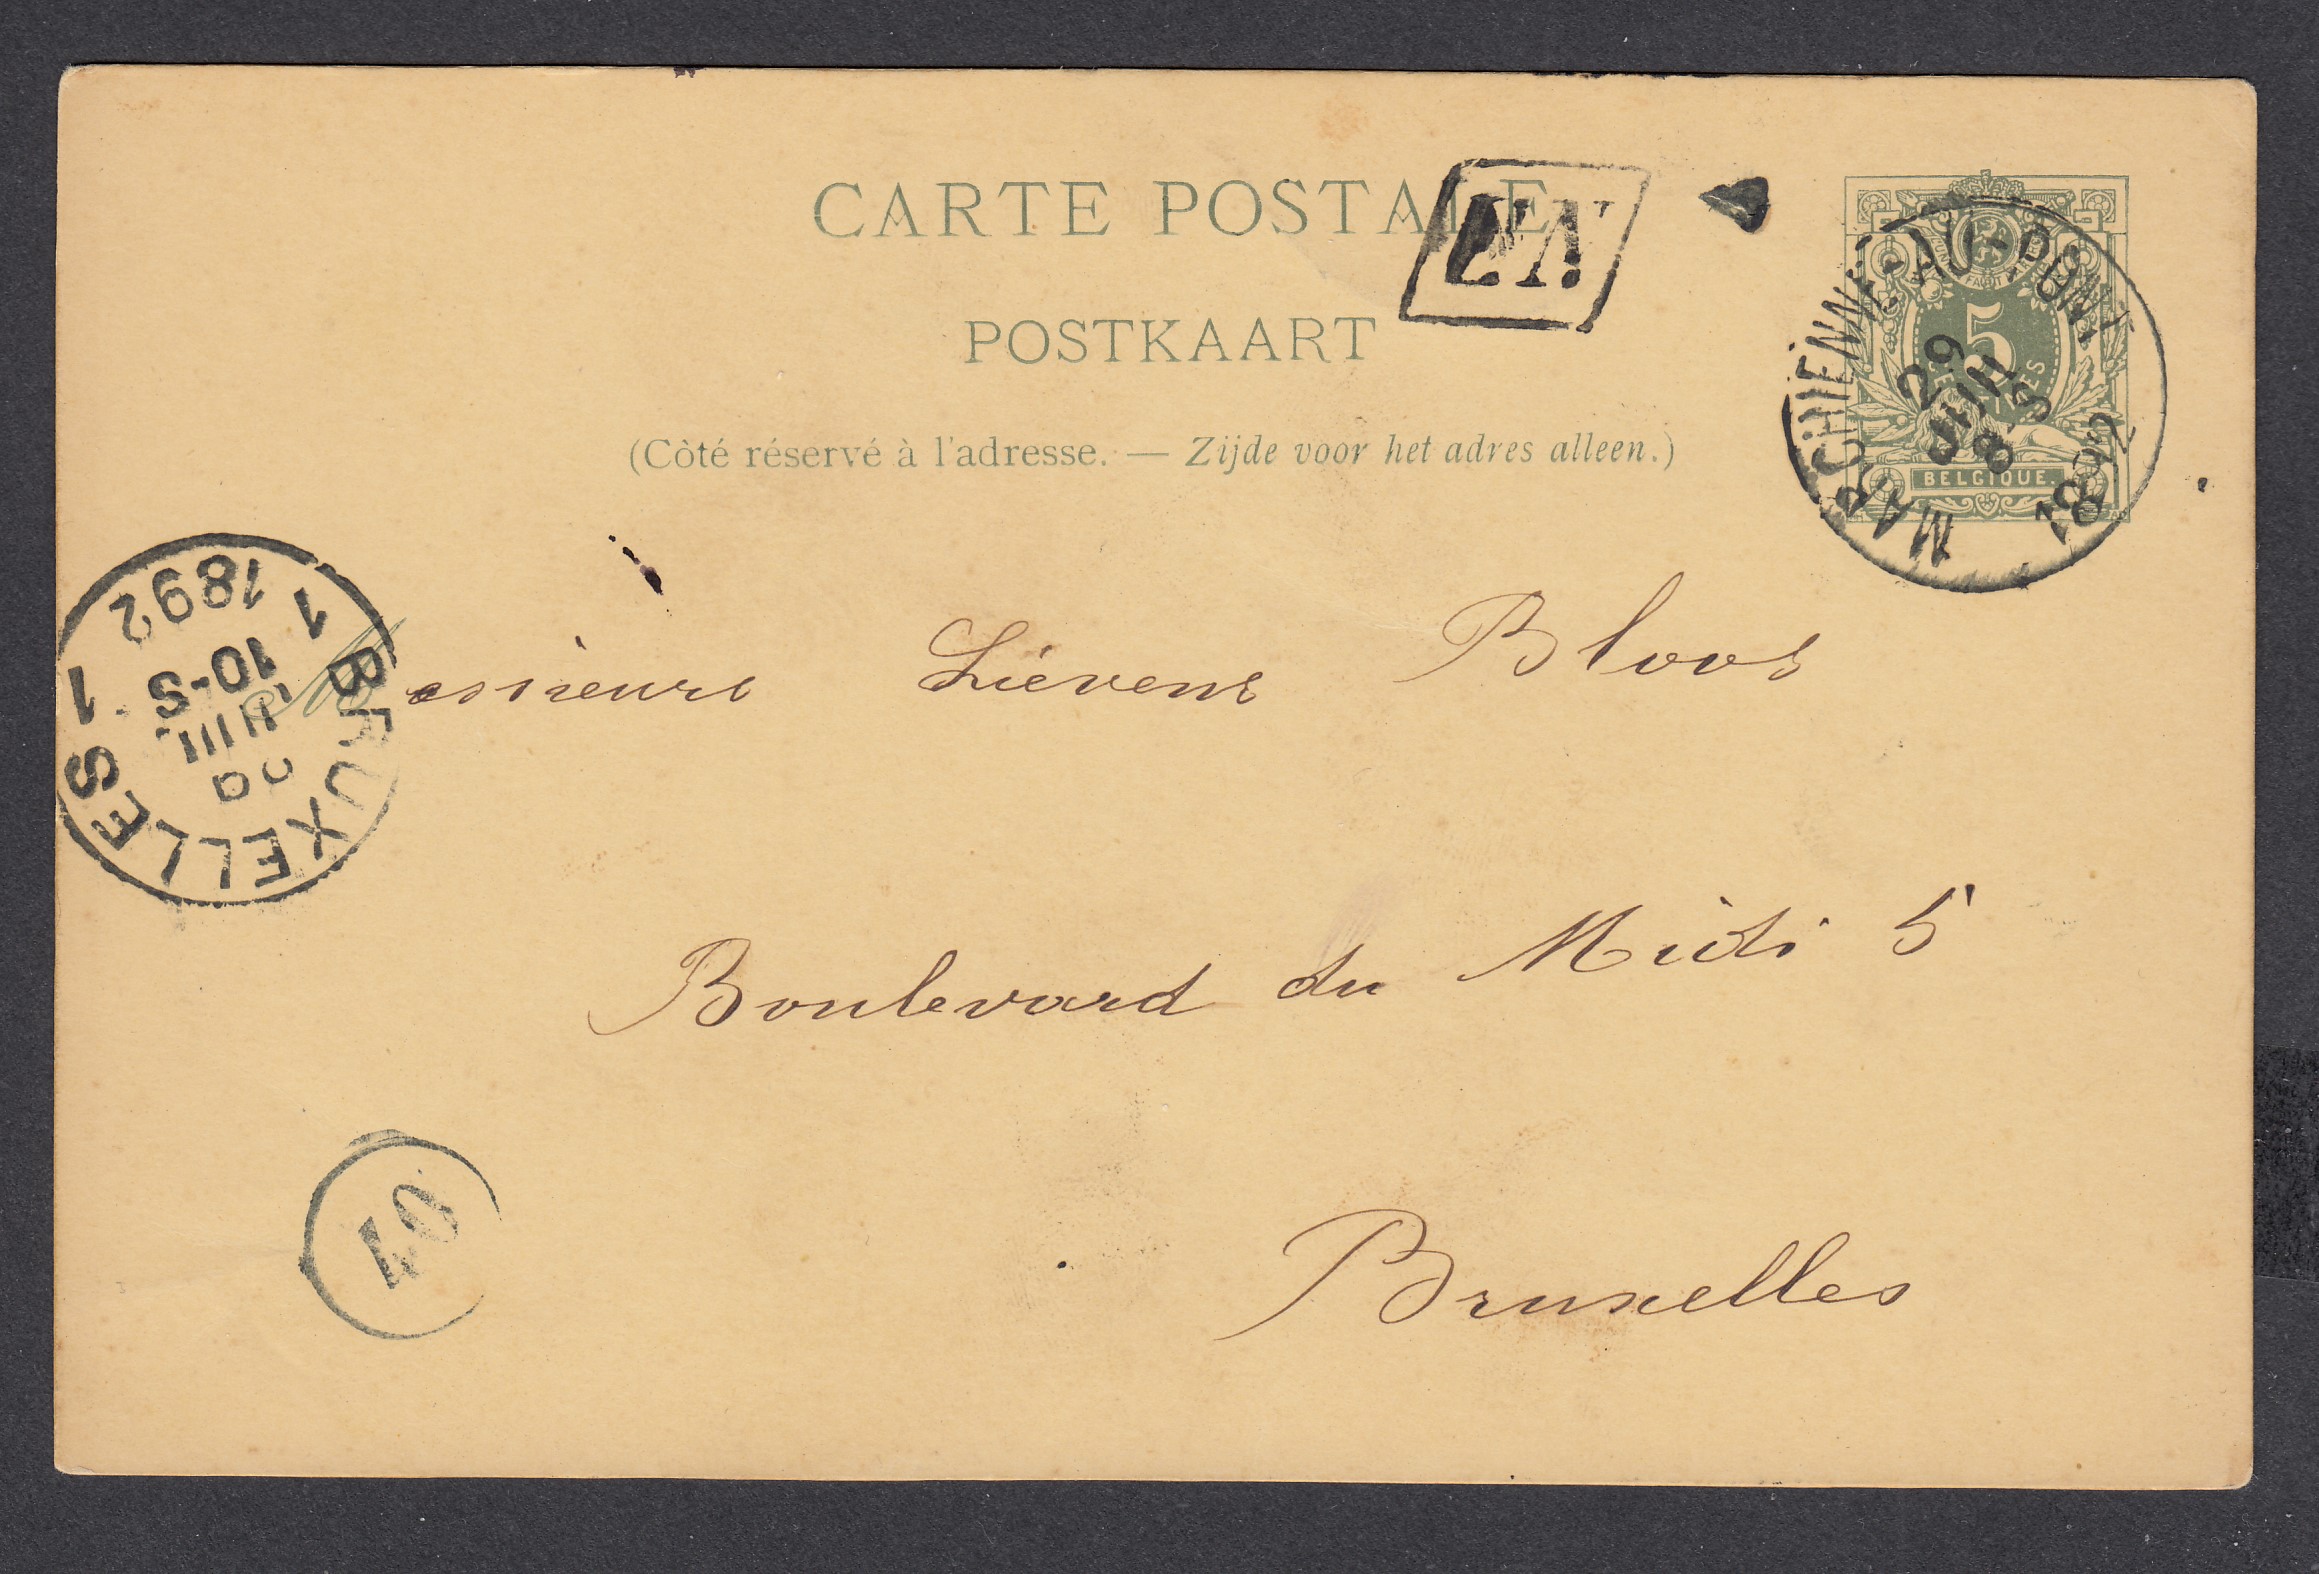 CARTE POSTALE
POSTKAART
(Côté réservé à l'adresse. — Zijde voor het adres alleen.)
5
CENTIMES
BELGIQUE.
MARCHIENNE-AU-PONT
29
JUIN
8-S
1892
1 BRUXELLES 1
JUIN
10-S
1892
Messieurs Liévens Bloos
Boulevard du Midi 5
Bruxelles